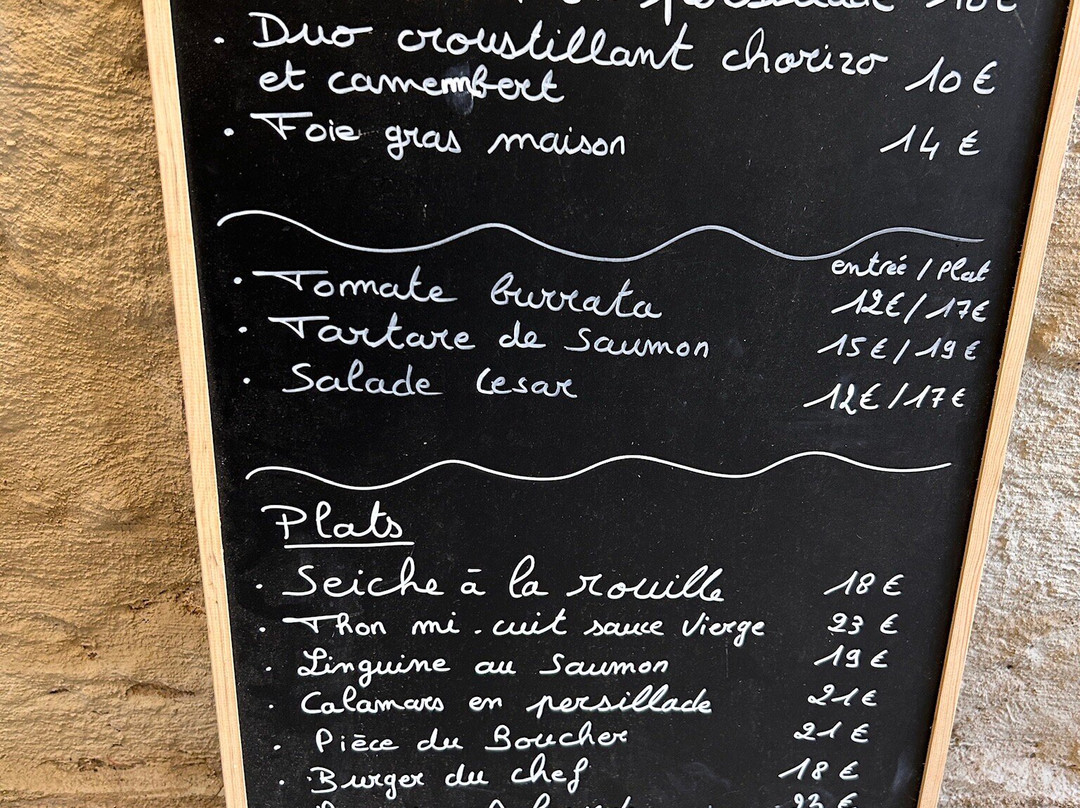 persillade 10€
• Duo croustillant chorizo
et camembert 10 €
• Foie gras maison 14 €
entrée / Plat
• Tomate burrata 12€ / 17€
• Tartare de saumon 15€ / 19€
• Salade Cesar 12€ / 17€
Plats
• Seiche à la rouille 18 €
• Thon mi-cuit sauce vierge 23 €
• Linguine au saumon 19 €
• Calamars en persillade 21€
• Pièce du Boucher 21 €
• Burger du chef 18 €
23 €